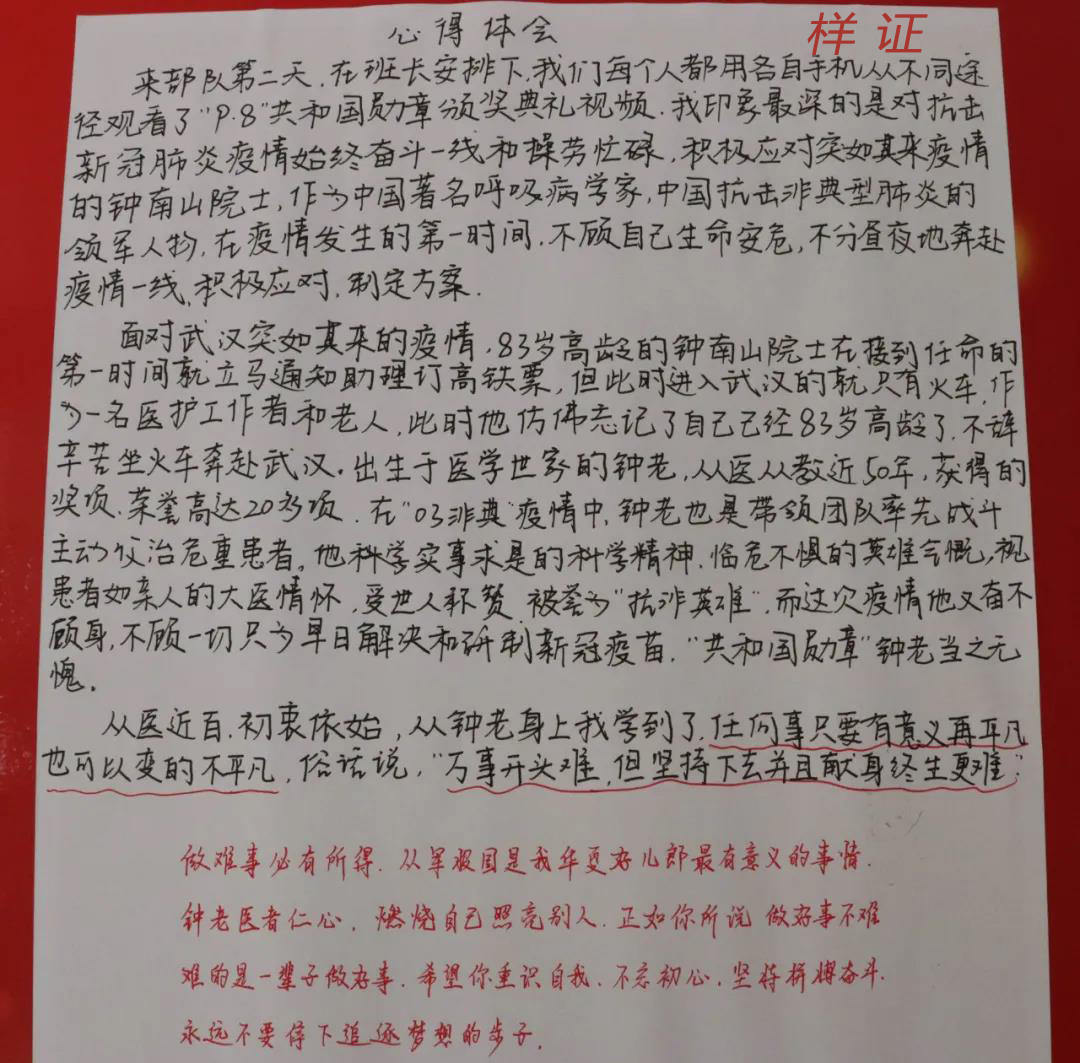 样证
心得体会
来部队第二天.在班长安排下,我们每个人都用各自手机从不同途
径观看了"9.8"共和国勋章颁奖典礼视频.我印象最深的是对抗击
新冠肺炎疫情始终奋斗一线和操劳忙碌,积极应对突如其来疫情
的钟南山院士,作为中国著名呼吸病学家,中国抗击非典型肺炎的
领军人物,在疫情发生的第一时间.不顾自己生命安危,不分昼夜地奔赴
疫情一线,积极应对.制定方案.
面对武汉突如其来的疫情,83岁高龄的钟南山院士在接到任命的
第一时间就立马通知助理订高铁票,但此时进入武汉的就只有火车,作
为一名医护工作者和老人,此时他仿佛忘记了自己已经83岁高龄了.不辞
辛苦坐火车奔赴武汉.出生于医学世家的钟老,从医从教近50年,获得的
奖项.荣誉高达20多项.在"03非典"疫情中,钟老也是带领团队率先战斗
主动收治危重患者。他科学实事求是的科学精神.临危不惧的英雄气慨,视
患者如亲人的大医情怀,受世人称赞 被誉为"抗非英雄".而这次疫情他又奋不
顾身,不顾一切只为早日解决和研制新冠疫苗."共和国勋章"钟老当之无
愧.
从医近百.初衷依始,从钟老身上我学到了.任何事只要有意义再平凡
也可以变的不平凡,俗话说,"万事开头难,但坚持下去并且献身终生更难"
做难事必有所得.从军报国是我华夏好儿郎最有意义的事情.
钟老医者仁心,燃烧自己照亮别人.正如你所说 做好事不难
难的是一辈子做好事.希望你重识自我.不忘初心,坚持拼搏奋斗.
永远不要停下追逐梦想的步子.